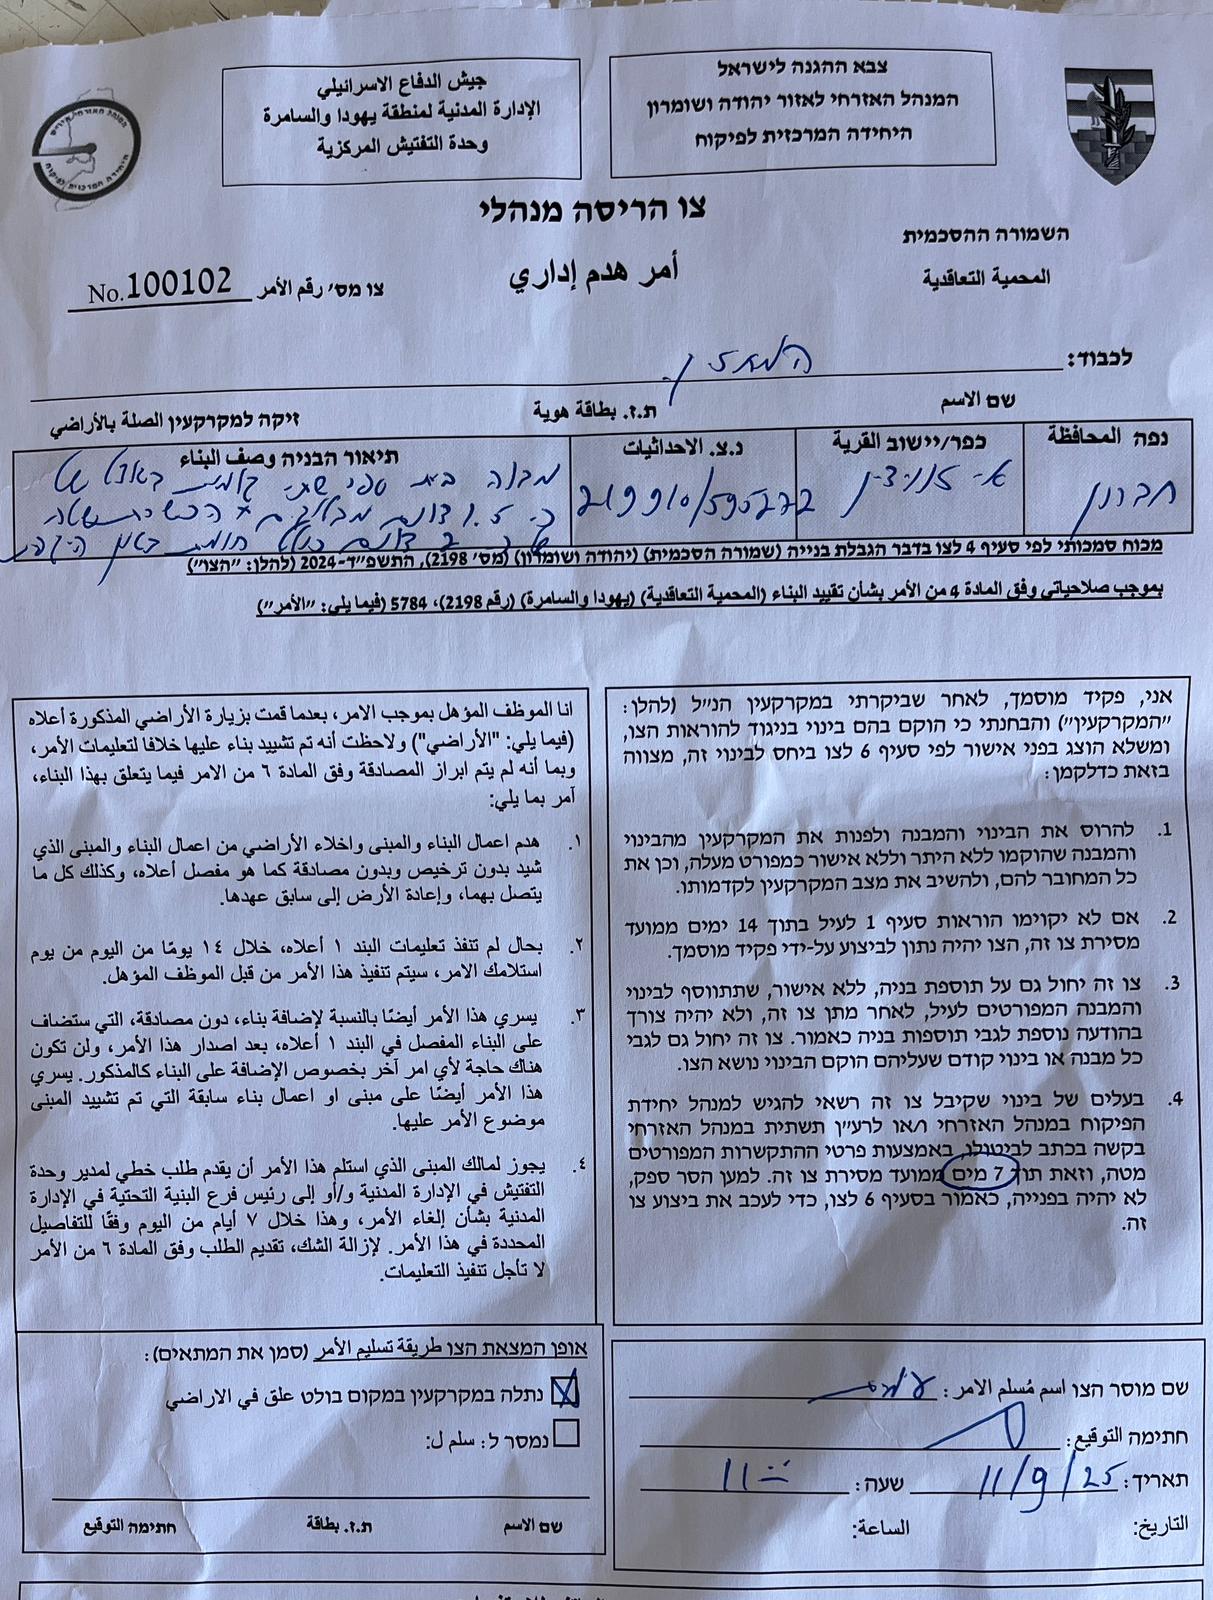 צבא ההגנה לישראל
המנהל האזרחי לאזור יהודה ושומרון
היחידה המרכזית לפיקוח
جيش الدفاع الاسرائيلي
الإدارة المدنية لمنطقة يهودا والسامرة
وحدة التفتيش المركزية
צו הריסה מנהלי
השמורה ההסכמית
أمر هدم إداري
المحمية التعاقدية
צו מס' رقم الأمر No.100102
לכבוד: המחזיק
שם الاسم
ת.ז. بطاقة هوية
זיקה למקרקעין الصلة بالأراضي
נפה المحافظة
כפר/יישוב القرية
נ.צ. الاحداثيات
תיאור הבניה وصف البناء
חברון
219910/595272
מבנה בית ספר
מכוח סמכותי לפי סעיף 4 לצו בדבר הגבלת בנייה (שמורה הסכמית) (יהודה ושומרון) (מס' 2198), התשפ״ד-2024 (להלן: ״הצו״)
بموجب صلاحياتي وفق المادة 4 من الأمر بشأن تقييد البناء (المحمية التعاقدية) (يهودا والسامرة) (رقم 2198)، 5784 (فيما يلي: ״الأمر״)
אני, פקיד מוסמך, לאחר שביקרתי במקרקעין הנ״ל (להלן:
״המקרקעין״) והבחנתי כי הוקם בהם בינוי בניגוד להוראות הצו,
ומשלא הוצג בפני אישור לפי סעיף 6 לצו ביחס לבינוי זה, מצווה
בזאת כדלקמן:
1. להרוס את הבינוי והמבנה ולפנות את המקרקעין מהבינוי
והמבנה שהוקמו ללא היתר וללא אישור כמפורט מעלה, וכן את
כל המחובר להם, ולהשיב את מצב המקרקעין לקדמותו.
2. אם לא יקוימו הוראות סעיף 1 לעיל בתוך 14 ימים ממועד
מסירת צו זה, הצו יהיה נתון לביצוע על-ידי פקיד מוסמך.
3. צו זה יחול גם על תוספת בניה, ללא אישור, שתתווסף לבינוי
והמבנה המפורטים לעיל, לאחר מתן צו זה, ולא יהיה צורך
בהודעה נוספת לגבי תוספות בניה כאמור. צו זה יחול גם לגבי
כל מבנה או בינוי קודם שעליהם הוקם הבינוי נושא הצו.
4. בעלים של בינוי שקיבל צו זה רשאי להגיש למנהל יחידת
הפיקוח במנהל האזרחי ו/או לרע״ן תשתית במנהל האזרחי
בקשה בכתב לביטולו, באמצעות פרטי ההתקשרות המפורטים
מטה, וזאת תוך 7 ימים ממועד מסירת צו זה. למען הסר ספק,
לא יהיה בפנייה, כאמור בסעיף 6 לצו, כדי לעכב את ביצוע צו
זה.
انا الموظف المؤهل بموجب الامر، بعدما قمت بزيارة الأراضي المذكورة أعلاه
(فيما يلي: "الأراضي") ولاحظت أنه تم تشييد بناء عليها خلافا لتعليمات الأمر،
وبما أنه لم يتم ابراز المصادقة وفق المادة ٦ من الامر فيما يتعلق بهذا البناء،
آمر بما يلي:
١. هدم اعمال البناء والمبنى واخلاء الأراضي من اعمال البناء والمبنى الذي
شيد بدون ترخيص وبدون مصادقة كما هو مفصل أعلاه، وكذلك كل ما
يتصل بهما، وإعادة الأرض إلى سابق عهدها.
٢. بحال لم تنفذ تعليمات البند ١ أعلاه، خلال ١٤ يومًا من اليوم من يوم
استلامك الامر، سيتم تنفيذ هذا الأمر من قبل الموظف المؤهل.
٣. يسري هذا الأمر أيضًا بالنسبة لإضافة بناء، دون مصادقة، التي ستضاف
على البناء المفصل في البند ١ أعلاه، بعد اصدار هذا الأمر، ولن تكون
هناك حاجة لأي امر آخر بخصوص الإضافة على البناء كالمذكور. يسري
هذا الأمر أيضًا على مبنى او اعمال بناء سابقة التي تم تشييد المبنى
موضوع الأمر عليها.
٤. يجوز لمالك المبنى الذي استلم هذا الأمر أن يقدم طلب خطي لمدير وحدة
التفتيش في الإدارة المدنية و/أو إلى رئيس فرع البنية التحتية في الإدارة
المدنية بشأن إلغاء الأمر، وهذا خلال ٧ أيام من اليوم وفقًا للتفاصيل
المحددة في هذا الأمر. لإزالة الشك، تقديم الطلب وفق المادة ٦ من الأمر
لا تأجل تنفيذ التعليمات.
שם מוסר הצו اسم مُسلم الامر:
חתימה التوقيع:
תאריך: 11/9/25 שעה: 11:00
التاريخ: الساعة:
אופן המצאת הצו طريقة تسليم الأمر (סמן את המתאים):
נתלה במקרקעין במקום בולט علق في الاراضي
נמסר ל: سلم ل:
שם الاسم
ת.ז. بطاقة
חתימה التوقيع